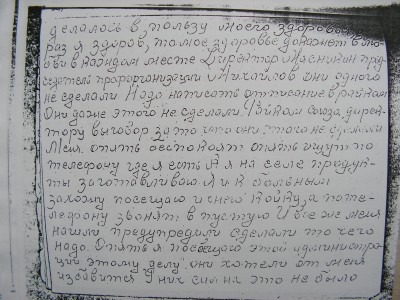 делалось в пользу моего здоровья
раз я здоров, то мое здоровье должно в
в каждом месте Директор Мясникин пред
седатель проforганизации Михайлов они одного
не сделали Надо написать отписание в райком
Они даже этого не сделали. Райком союза дирек
тору выговор за то что они этого не сделали
Меня опять беспокоят опять ищут по
телефону где я есть А я на селе продук-
ты заготавливаю. Я и к больным
захожу посещаю и снею койку, а по те-
лефону звонят в пустую И все же меня
нашли предупредили сделали то чего
надо. Опять я посещаю этой администра-
ции этому делу они хотели от меня
избавится У них сил на это не было